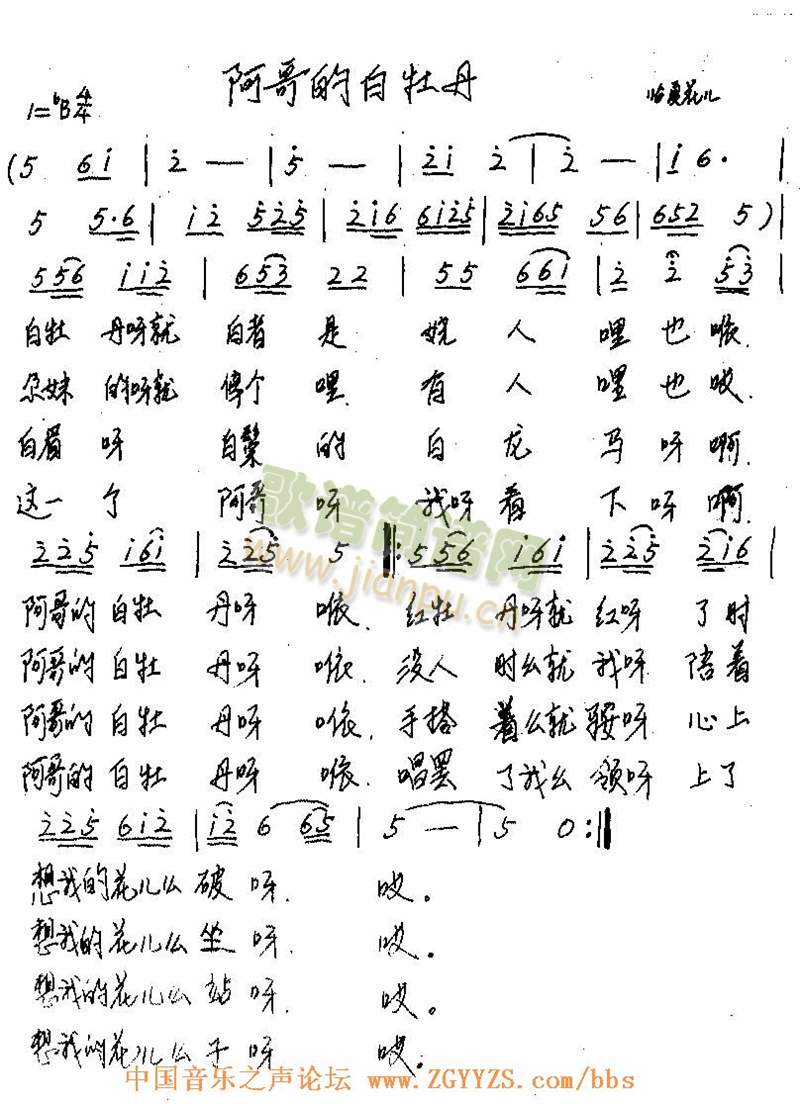 阿哥的白牡丹
1=ᵇB 4/4
临夏花儿
(5 6i | 2 — | 5 — | 2i 2 | 2 — | i 6· |
5 5·6 | i2 525 | 2i6 6i25 | 2i65 56 | 652 5) |
556 ii2 | 653 22 | 55 66i | 2 2 53 |
白牡 丹呀就 白者 是 娆 人 哩 也 哝.
尕妹 的呀就 俜个 哩. 有 人 哩 也 哎.
白眉 呀 白鬃 的 白 龙 马 呀 啊.
这一 个 阿哥 呀 我呀 着 下 呀 啊.
225 i6i | 225 5 :556 i6i | 225 2i6 |
阿哥的 白牡 丹呀 咴. 红牡 丹呀就 红呀 了时
阿哥的 白牡 丹呀 咴. 没人 时么就 我呀 陪着
阿哥的 白牡 丹呀 咴. 手搭 着么就 鞍呀 心上
阿哥的 白牡 丹呀 咴. 唱罢 了我么 领呀 上了
225 6i2 | i2 6 65 | 5 — | 5 0 :‖
想我的花儿么 破 呀. 哎。
想我的花儿么 坐 呀. 哎。
想我的花儿么 站 呀. 哎。
想我的花儿么 于 呀 哎.
歌谱简谱网
www.jianpu.cn
中国音乐之声论坛 www.ZGYYZS.com/bbs